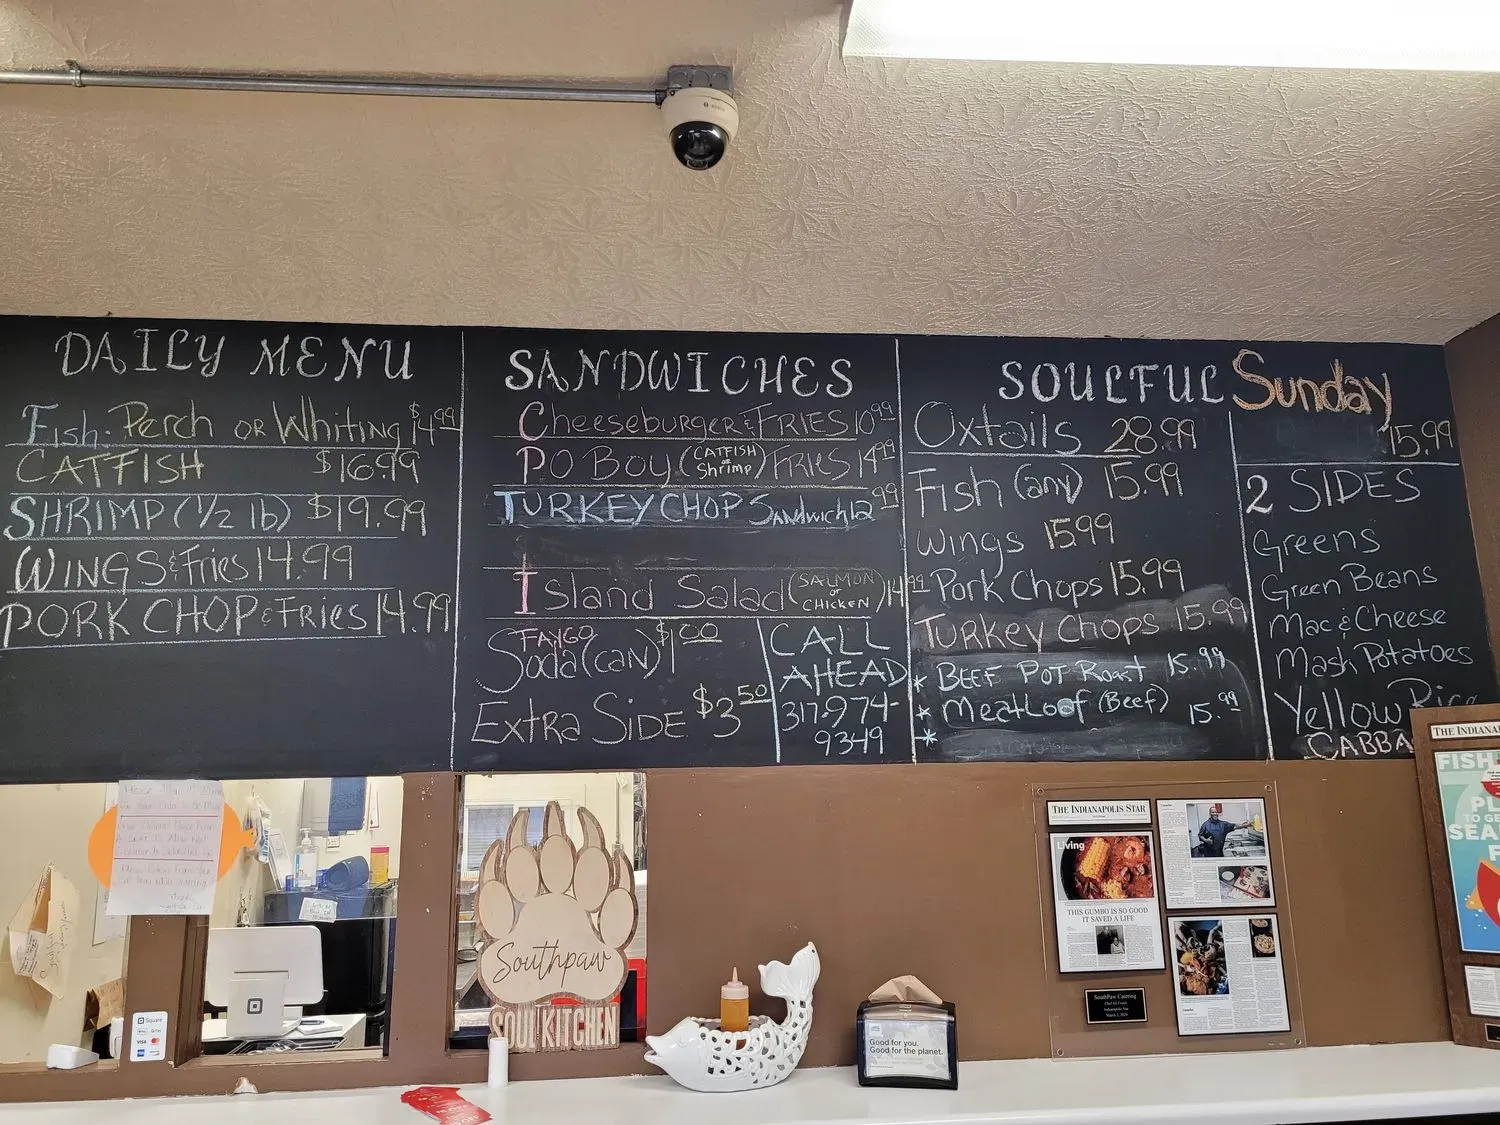 DAILY MENU
Fish. Perch or Whiting $14.99
CATFISH $16.99
SHRIMP (1/2 lb) $19.99
WINGS & Fries 14.99
PORK CHOP & Fries 14.99
SANDWICHES
Cheeseburger & FRIES 10.99
PO Boy (CATFISH or Shrimp) FRIES 14.99
TURKEY CHOP Sandwich 12.99
Island Salad (SALMON or CHICKEN) 14.99
FAYGO
Soda (can) $1.00
Extra SIDE $3.50
CALL
AHEAD
317-974-
9349
SOULFUL Sunday
Oxtails 28.99
Fish (any) 15.99
Wings 15.99
Pork Chops 15.99
Turkey Chops 15.99
* BEEF POT Roast 15.99
* MeatLoaf (Beef) 15.99
*
15.99
2 SIDES
Greens
Green Beans
Mac & Cheese
Mash Potatoes
Yellow Rice
CABBA
Southpaw
SOUL KITCHEN
Square
VISA
Good for you.
Good for the planet.
THE INDIANAPOLIS STAR
Living
THIS GUMBO IS SO GOOD
IT SAVED A LIFE
SouthPaw Catering
Indianapolis Star
THE INDIANA
FISH
PL
TO GE
SEA
F